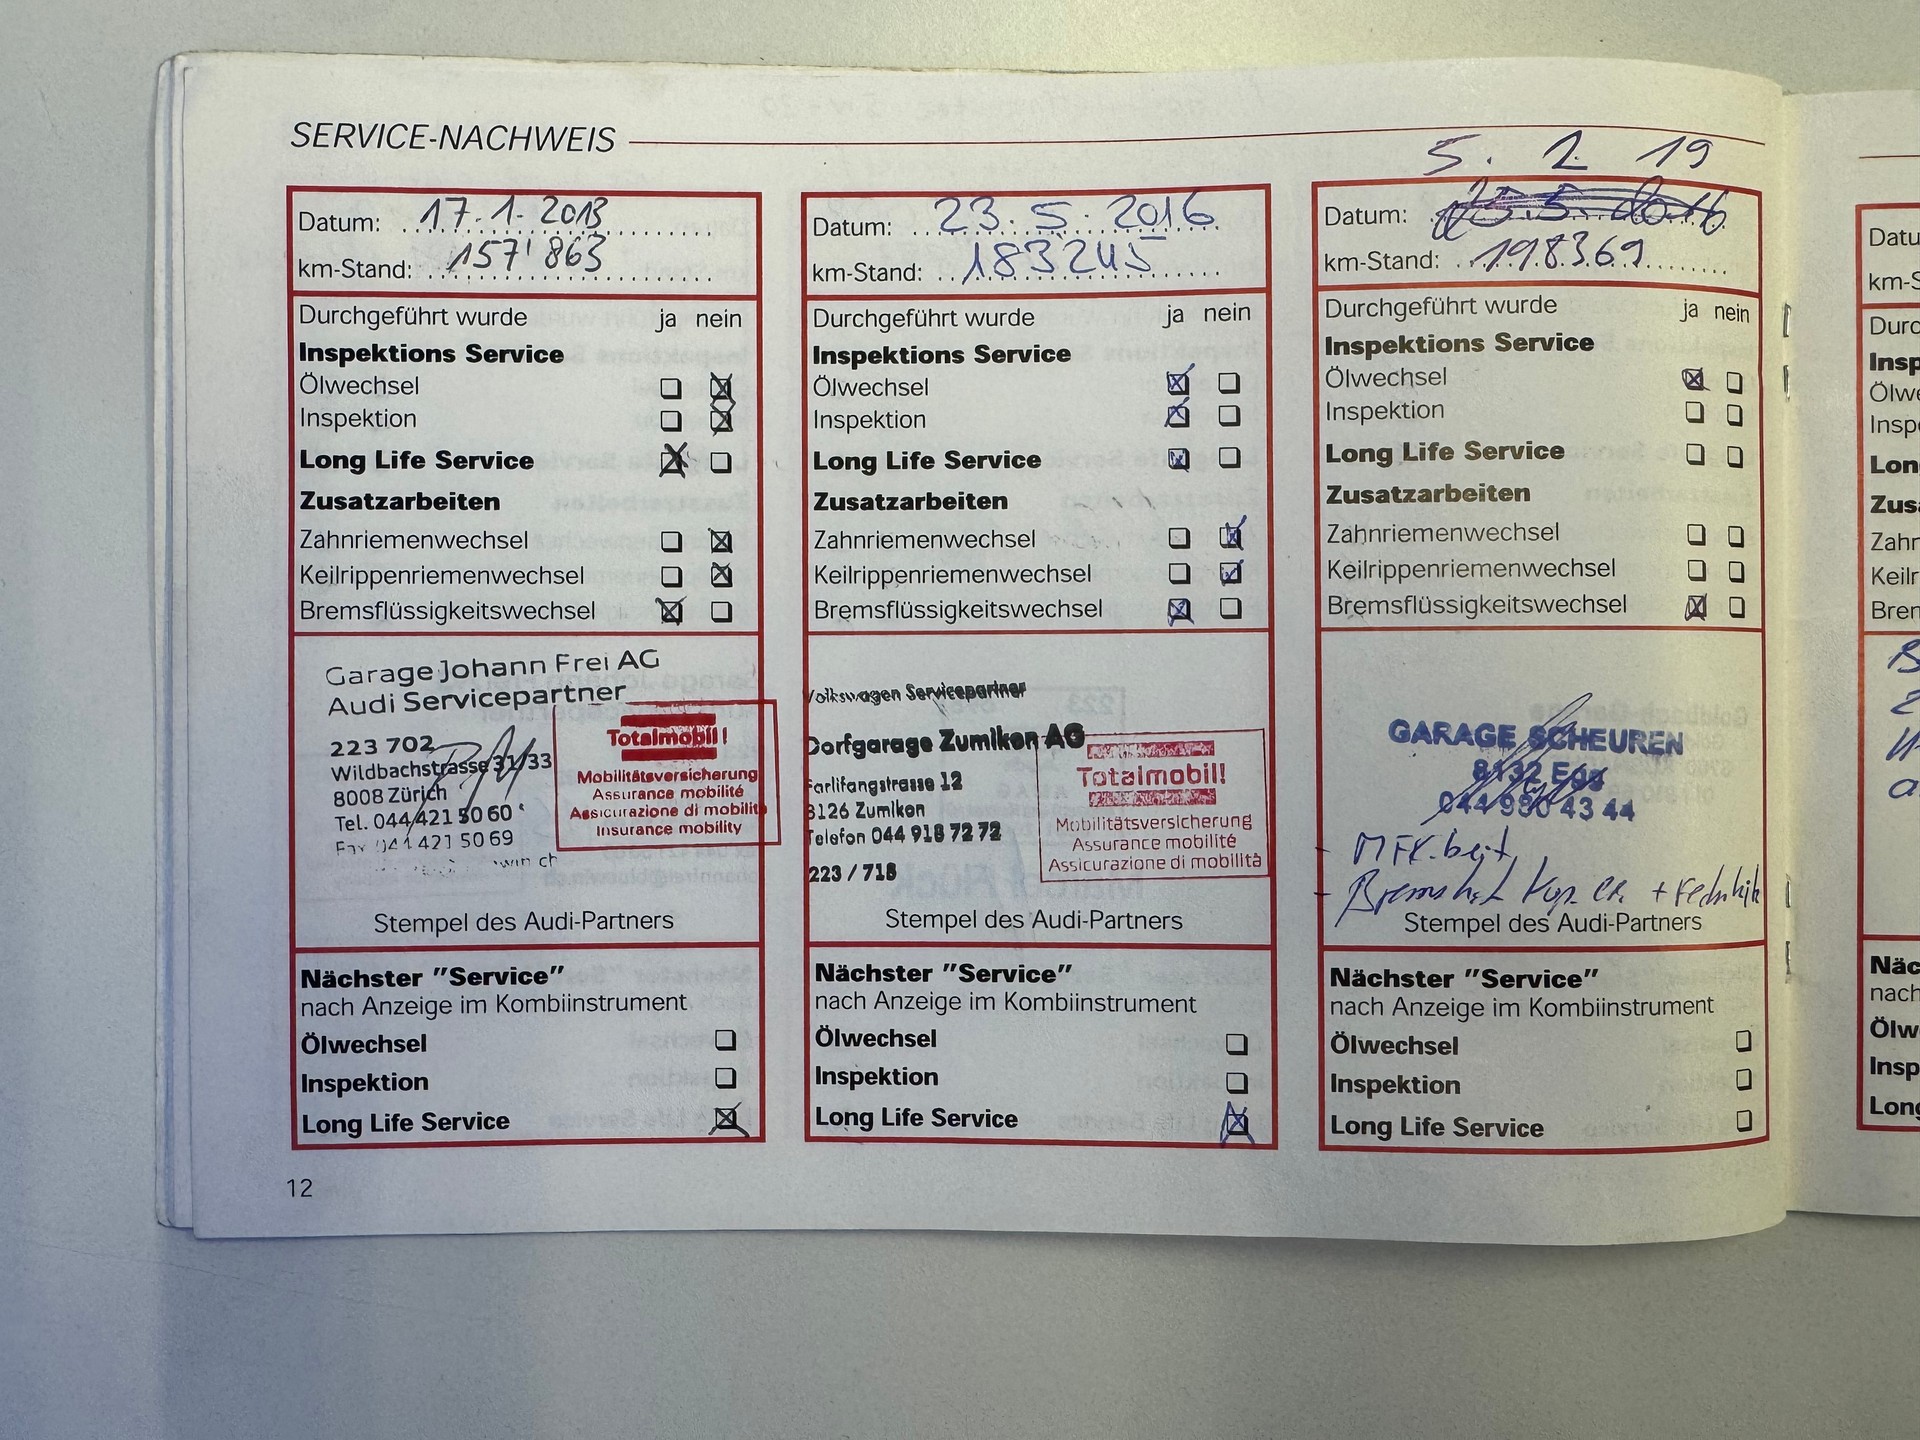 SERVICE-NACHWEIS
Datum: 17.1.2013
km-Stand: 157'863
Durchgeführt wurde ja nein
Inspektions Service
Ölwechsel
Inspektion
Long Life Service
Zusatzarbeiten
Zahnriemenwechsel
Keilrippenriemenwechsel
Bremsflüssigkeitswechsel
Garage Johann Frei AG
Audi Servicepartner
223 702
Wildbachstrasse 31/33
8008 Zürich
Tel. 044 421 50 60
Fax 044 421 50 69
Totalmobil!
Mobilitätsversicherung
Assurance mobilité
Assicurazione di mobilità
Insurance mobility
Stempel des Audi-Partners
Nächster "Service"
nach Anzeige im Kombiinstrument
Ölwechsel
Inspektion
Long Life Service
12
Datum: 23.5.2016
km-Stand: 183245
Durchgeführt wurde ja nein
Inspektions Service
Ölwechsel
Inspektion
Long Life Service
Zusatzarbeiten
Zahnriemenwechsel
Keilrippenriemenwechsel
Bremsflüssigkeitswechsel
Volkswagen Servicepartner
Dorfgarage Zumikon AG
Farlifangstrasse 12
8126 Zumikon
Telefon 044 918 72 72
223 / 718
Totalmobil!
Mobilitätsversicherung
Assurance mobilité
Assicurazione di mobilità
Stempel des Audi-Partners
Nächster "Service"
nach Anzeige im Kombiinstrument
Ölwechsel
Inspektion
Long Life Service
5. 2 19
Datum:
km-Stand: 198369
Durchgeführt wurde ja nein
Inspektions Service
Ölwechsel
Inspektion
Long Life Service
Zusatzarbeiten
Zahnriemenwechsel
Keilrippenriemenwechsel
Bremsflüssigkeitswechsel
GARAGE SCHEUREN
8132 Egg
044 980 43 44
- MFK.
-
Stempel des Audi-Partners
Nächster "Service"
nach Anzeige im Kombiinstrument
Ölwechsel
Inspektion
Long Life Service
Datu
km-S
Durc
Insp
Ölwe
Insp
Lon
Zus
Zahn
Keilr
Bren
Näc
nach
Ölw
Insp
Long